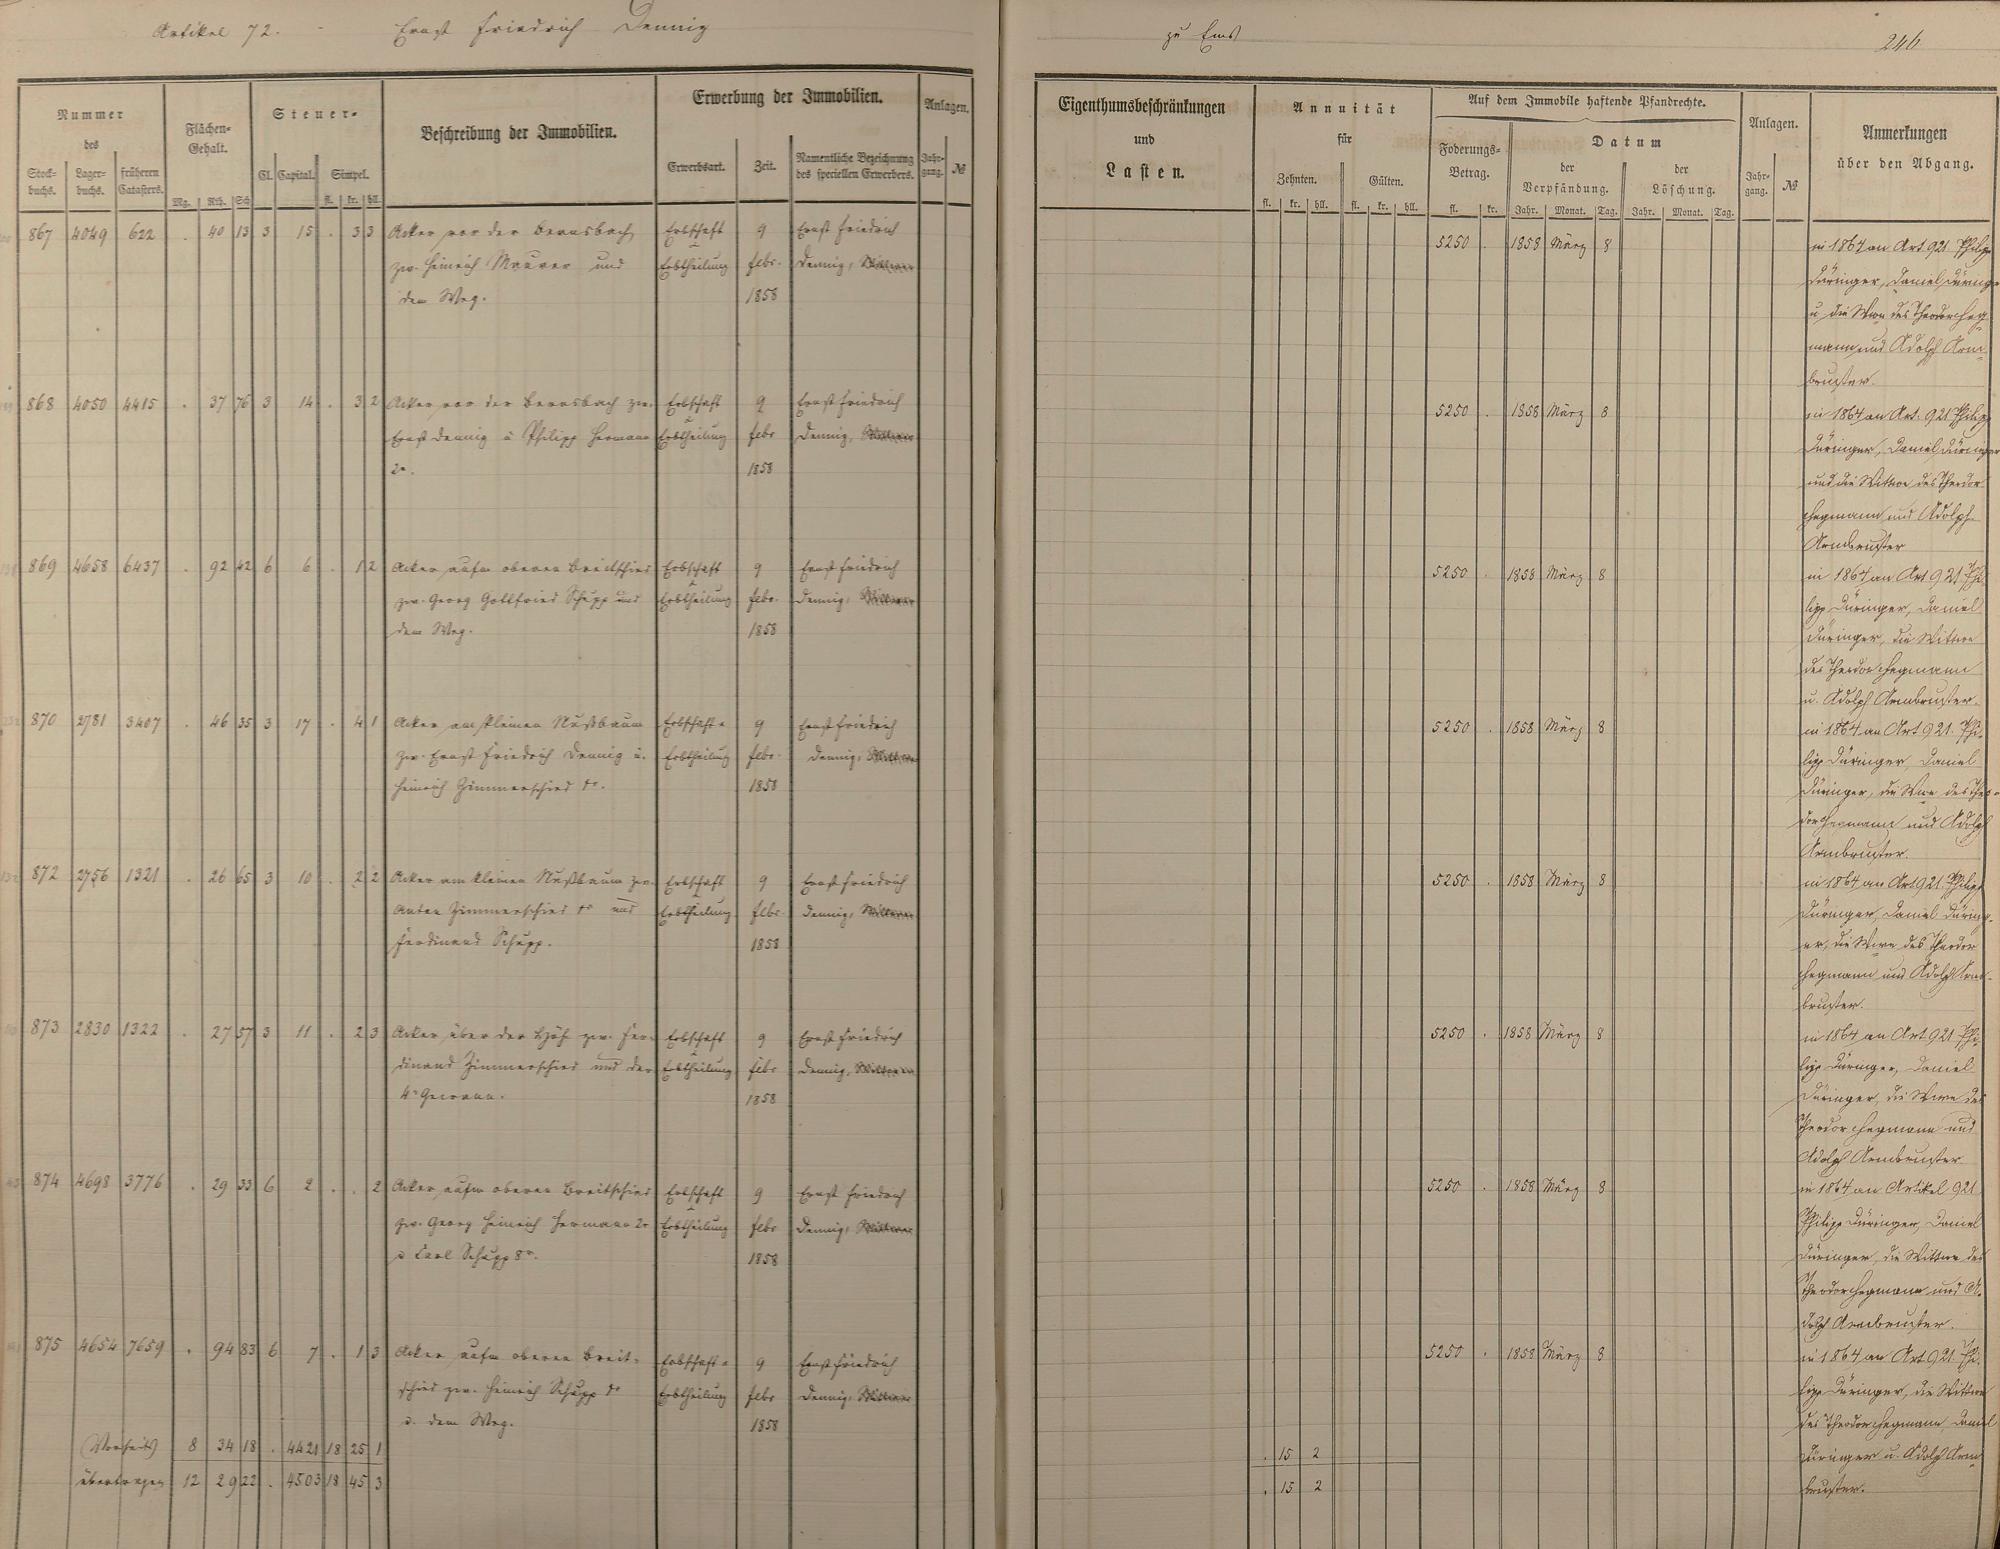 Artikel 72. Ernst Friedrich Dennig
zu Ems
246
Nummer
des
Stock-
buchs.
Lager-
buchs.
früheren
Catasters.
Flächen-
Gehalt.
Mg. Rth. Sch
Steuer-
Cl. Capital. Simpel.
fl. kr. hll.
Beschreibung der Immobilien.
Erwerbung der Immobilien.
Erwerbsart. Zeit.
Namentliche Bezeichnung
des speciellen Erwerbers.
Anlagen.
Jahr-
gang.
№
Eigenthumsbeschränkungen
und
Lasten.
Annuität
für
Zehnten. Gülten.
fl. kr. hll. fl. kr. hll.
Auf dem Immobile haftende Pfandrechte.
Foderungs-
Betrag.
fl. kr.
Datum
der
Verpfändung.
der
Löschung.
Jahr. Monat. Tag. Jahr. Monat. Tag.
Anlagen.
Jahr-
gang.
№
Anmerkungen
über den Abgang.
867 4049 622 . 40 13 3 15 . 3 3 Acker vor der Braasbach Erbschaft 9 Ernst Friedrich
zw. Heinrich Maurer und Erbtheilung febr. Dennig,
dem Weg. 1858
5250 . 1858 März 8
in 1864 an Art 921 Philipp
Düringer, Daniel Düringer
u die Wwe des Theodor Heg-
mann und Adolph Arm-
bruster.
868 4050 4415 . 37 76 3 14 . 3 2 Acker vor der Braasbach zw. Erbschaft 9 Ernst Friedrich
Ernst Dennig u Philipp Hermann Erbtheilung febr Dennig,
2r. 1858
5250 . 1858 März 8
in 1864 an Art. 921 Philipp
Düringer, Daniel Düringer
und die Wittwe des Theodor
Hegmann und Adolph
Armbruster
869 4658 6437 . 92 42 6 6 . 1 2 Acker aufm oberen Breitschied Erbschaft 9 Ernst Friedrich
zw. Georg Gottfried Schupp und Erbtheilung febr. Dennig,
dem Weg. 1858
5250 . 1858 März 8
in 1864 an Art 921 Phi-
lipp Düringer, Daniel
Düringer, die Wittwe
des Theodor Hegmann
u. Adolph Armbruster.
870 2781 3407 . 46 35 3 17 . 4 1 Acker am kleinen Nußbaum Erbschaft 9 Ernst Friedrich
zw. Ernst Friedrich Dennig u. Erbtheilung febr. Dennig,
Heinrich Zimmerschied 1r. 1858
5250 . 1858 März 8
in 1864 an Art 921. Phi-
lipp Düringer, Daniel
Düringer, die Wwe des Theo-
dor Hegmann und Adolph
Armbruster.
872 2756 1321 . 26 65 3 10 . 2 2 Acker am kleinen Nußbaum zw. Erbschaft 9 Ernst Friedrich
Anton Zimmerschied 1r und Erbtheilung febr. Dennig,
Ferdinand Schupp. 1858
5250 . 1858 März 8
in 1864 an Art 921. Philipp
Düringer, Daniel Düring-
er, die Wwe des Theodor
Hegmann und Adolph Arm-
bruster.
873 2830 1322 . 27 57 3 11 . 2 3 Acker über der Höh zw. Fer- Erbschaft 9 Ernst Friedrich
dinand Zimmerschied und der Erbtheilung febr Dennig,
4r Gewann. 1858
5250 . 1858 März 8
in 1864 an Art 921 Phi-
lipp Düringer, Daniel
Düringer, die Wwe des
Theodor Hegmann und
Adolph Armbruster
874 4698 3776 . 29 33 6 2 . . 2 Acker aufm oberen Breitschied Erbschaft 9 Ernst Friedrich
zw. Georg Heinrich Hermann 2r Erbtheilung febr Dennig,
u Carl Schupp 8r. 1858
5250 . 1858 März 8
in 1864 an Artikel 921
Philipp Düringer, Daniel
Düringer, die Wittwe des
Theodor Hegmann und A-
dolph Armbruster.
875 4654 7659 . 94 83 6 7 . 1 3 Acker aufm oberen Breit- Erbschaft 9 Ernst Friedrich
schied zw. Heinrich Schupp 1r Erbtheilung febr Dennig,
u. dem Weg. 1858
5250 . 1858 März 8
in 1864 an Art 921. Phi-
lipp Düringer, die Wittwe
des Theodor Hegmann, Daniel
Düringer u. Adolph Arm-
bruster.
Vorseits 8 34 18 . 4421 18 25 1 . 15 2
übertragen 12 29 22 . 4503 18 45 3 . 15 2